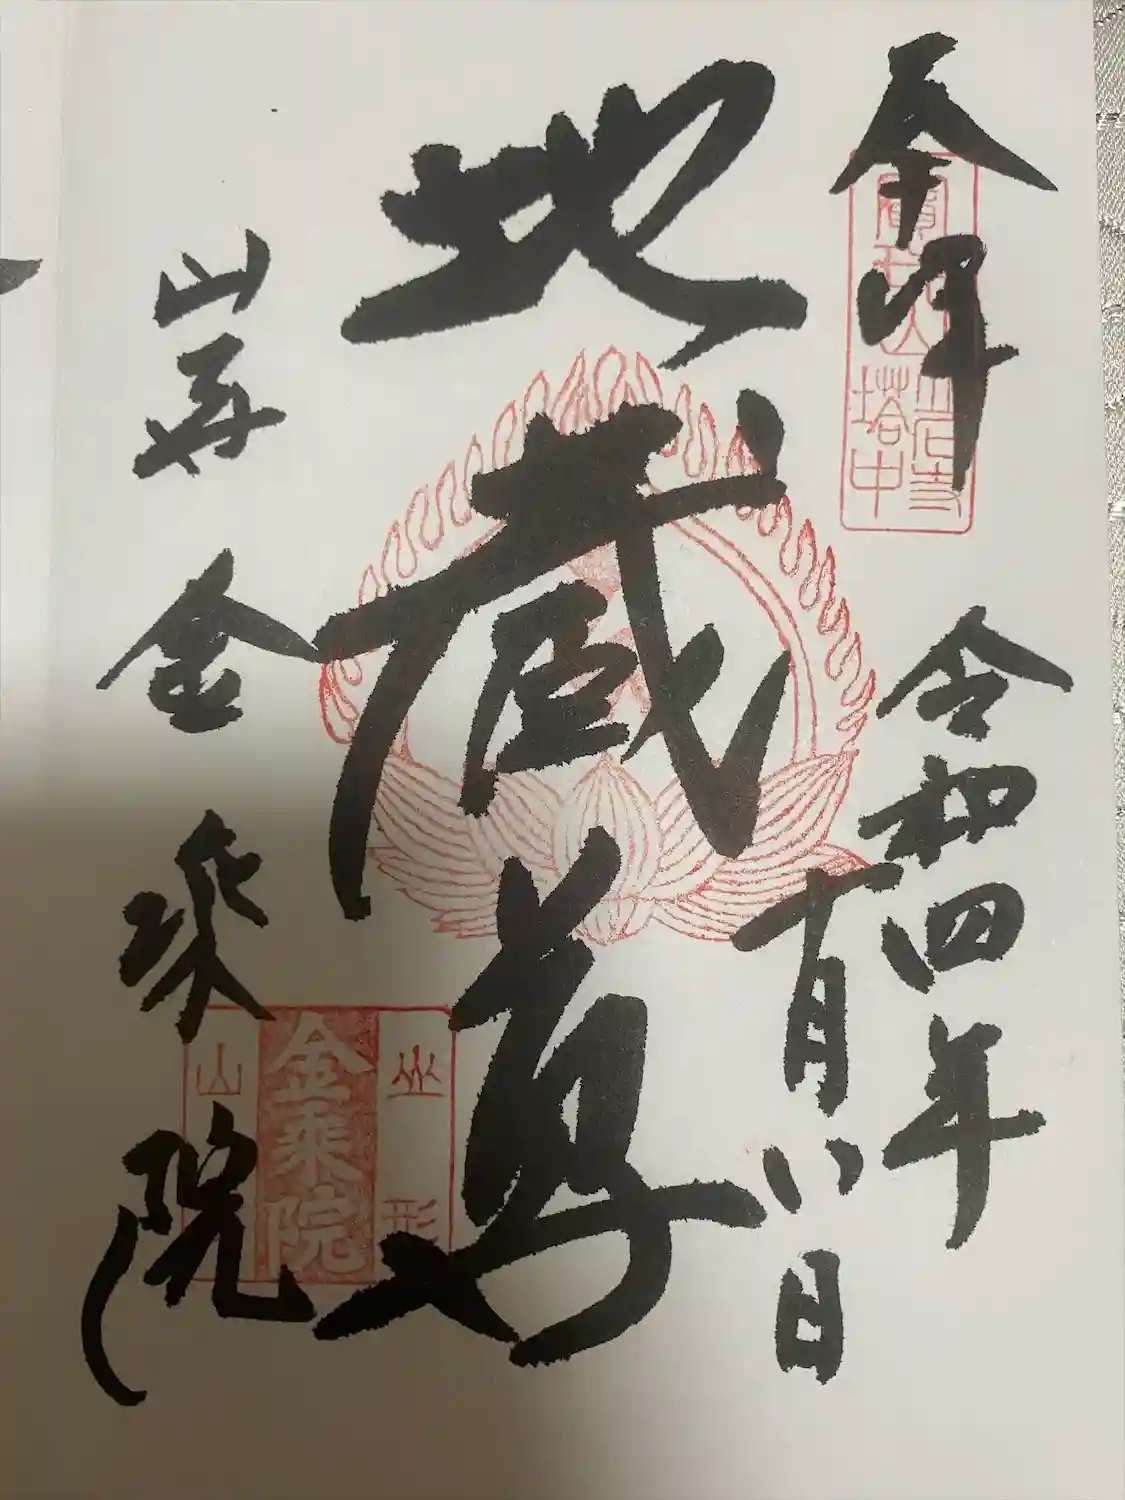 奉拝
令和四年
一月八日
地蔵尊
山寺
金乗院
塔中
金乗院
山形